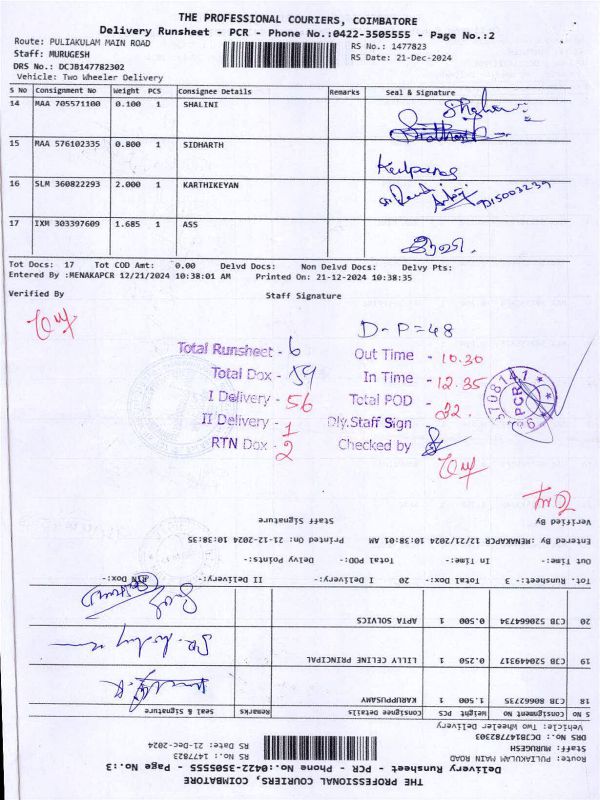 THE PROFESSIONAL COURIERS, COIMBATORE
Delivery Runsheet - PCR - Phone No.:0422-3505555 - Page No.:2
Route: PULIAKULAM MAIN ROAD RS No.: 1477823
Staff: MURUGESH RS Date: 21-Dec-2024
DRS No.: DCJB147782302
Vehicle: Two Wheeler Delivery
S No Consignment No Weight PCS Consignee Details Remarks Seal & Signature
14 MAA 705571100 0.100 1 SHALINI
15 MAA 576102335 0.800 1 SIDHARTH
16 SLM 360822293 2.000 1 KARTHIKEYAN
17 IXM 303397609 1.685 1 ASS
Tot Docs: 17 Tot COD Amt: 0.00 Delvd Docs: Non Delvd Docs: Delvy Pts:
Entered By :MENAKAPCR 12/21/2024 10:38:01 AM Printed On: 21-12-2024 10:38:35
Verified By Staff Signature
D-P=48
Total Runsheet - 6 Out Time - 10.30
Total Dox - 59 In Time - 12.35
I Delivery - 56 Total POD - 22.
II Delivery - 1 Dly.Staff Sign
RTN Dox - 2 Checked by
PCR
THE PROFESSIONAL COURIERS, COIMBATORE
Delivery Runsheet - PCR - Phone No.:0422-3505555 - Page No.:3
Route: PULIAKULAM MAIN ROAD RS No.: 1477823
Staff: MURUGESH RS Date: 21-Dec-2024
DRS No.: DCJB147782303
Vehicle: Two Wheeler Delivery
S No Consignment No Weight PCS Consignee Details Remarks Seal & Signature
18 CJB 80662735 1.500 1 KARUPPUSAMY
19 CJB 520449317 0.250 1 LILLY CELINE PRINCIPAL
20 CJB 520664734 0.500 1 APTA SOLVICS
Tot. Runsheet:- 3 Total Dox:- 20 I Delivery:- II Delivery:- RTN Dox:-
Out Time:- In Time:- Total POD:- Delvy Points:-
Entered By :MENAKAPCR 12/21/2024 10:38:01 AM Printed On: 21-12-2024 10:38:35
Verified By Staff Signature